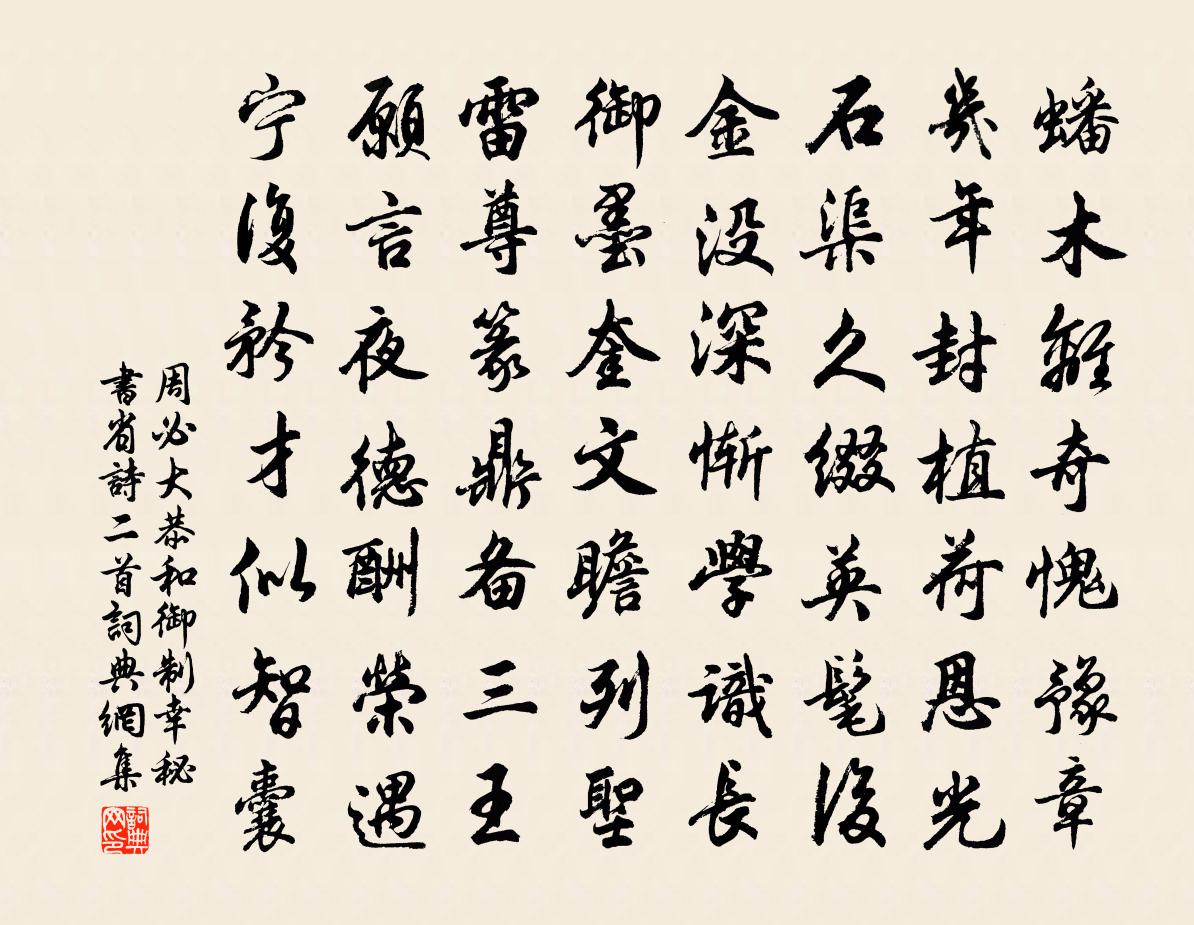 蟠木雖奇愧豫章
幾年封植荷恩光
石渠久綴英髦後
金没深慚學識長
御墨奎文瞻列聖
雷尊篆鼎备三王
願言夜德酬榮遇
宁復矜才似智囊
周必大恭和御制幸秘
書省詩二首詞典網集
詞典
网印